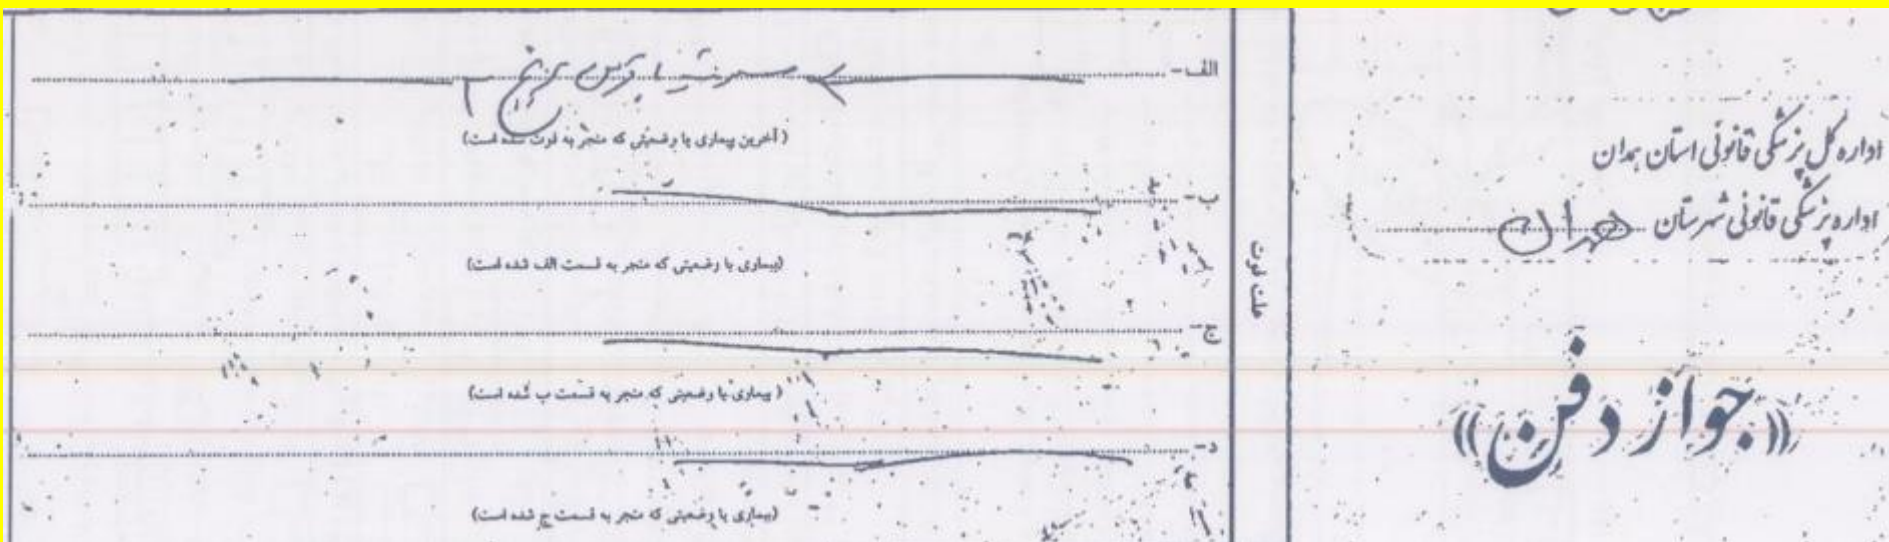 اداره کل پزشکی قانونی استان همدان
اداره پزشکی قانونی شهرستان همدان
«جواز دفن»
علت فوت
الف-
مسمومیت با قرص برنج
(آخرین بیماری یا وضعیتی که منجر به فوت شده است)
ب-
(بیماری یا وضعیتی که منجر به قسمت الف شده است)
ج-
(بیماری یا وضعیتی که منجر به قسمت ب شده است)
د-
(بیماری یا وضعیتی که منجر به قسمت ج شده است)